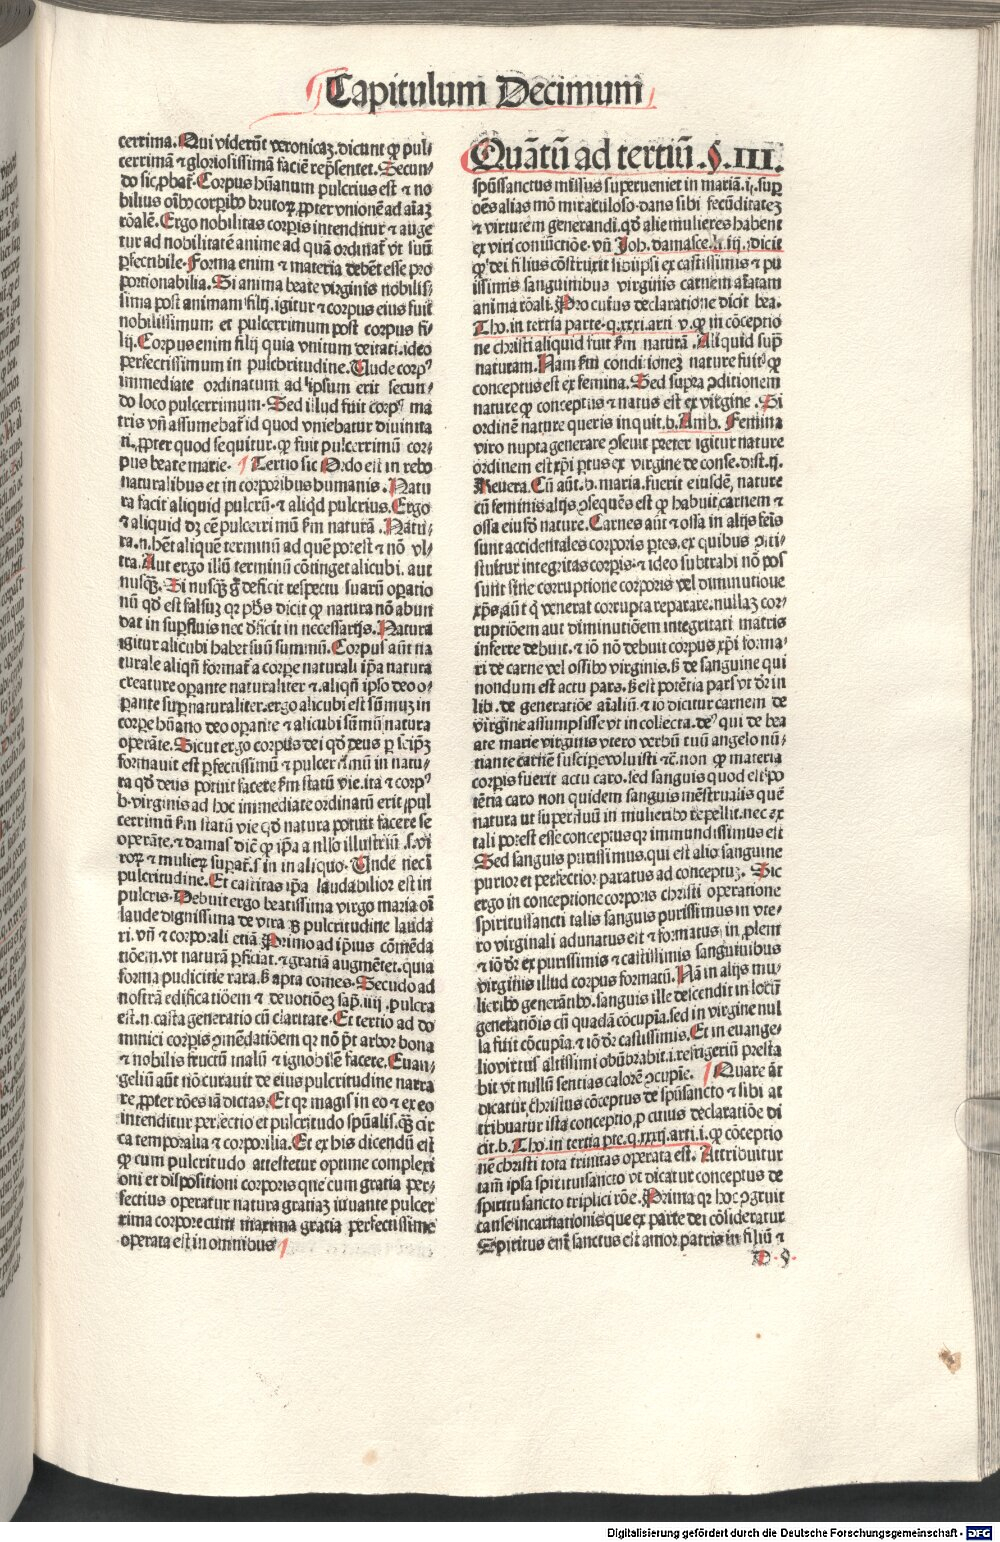 Capitulum Decimum
cerrima. Qui viderūt veronicaꝫ. dicunt ꝙ pul⸗
cerrimā ⁊ gloriosissimā faciē rep̄sentet. Secun⸗
do sic ꝓbat̄. Corpus hūanum pulcrius est ⁊ no
bilius oībꝰ corpibꝰ brutoꝝ ꝓpter vnionē ad aīaꝫ
rōalē. Ergo nobilitas corpis intenditur ⁊ auge
tur ad nobilitatē anime ad quā ordinat̄ vt suū
ꝑfectibile. Forma enim ⁊ materia debēt esse pro
portionabilia. Si anima beate virginis nobilis⸗
sima post animam filij. igitur ⁊ corpus eius fuit
nobilissimum et pulcerrimum post corpus fi⸗
lij. Corpus enim filij quia vnitum deitati. ideo
perfectissimum in pulchritudine. Unde corpꝰ
immediate ordinatum ad ipsum erit secun⸗
do loco pulcerrimum. Sed illud fuit corpꝰ ma
tris vn̄ assumebat̄ id quod vniebatur diuinita
ti. ꝓpter quod sequitur. ꝙ fuit pulcerrimū cor⸗
pus beate marie. Tertio sic Ordo est in rebꝰ
naturalibus et in corporibus humanis. Natu
ra facit aliquid pulcrū. ⁊ aliqd pulcrius. Ergo
⁊ aliquid dꝫ eē pulcerrimū ẜm naturā. Natu⸗
ra.n. hēt aliquē terminū ad quē potest ⁊ nō vl⸗
tra. Aut ergo illū terminū cōtinget alicubi. aut
nusꝙꝫ. Si nusꝙꝫ g̊ deficit respectu suarū operatio
nū qd̄ est falsuꝫ qꝛ ph̄s dicit ꝙ natura nō abun
dat in suꝑfluis nec deficit in necessarijs. Natura
igitur alicubi habet suū summū. Corpus aūt na
turale aliqn̄ format̄ a corpe naturali ipa natura
creature operante naturaliter ⁊. aliqn̄ ipso deo o⸗
perante suꝑnaturaliter. ergo alicubi est sūmuꝫ in
corpe hūano deo operante ⁊ alicubi sūmū natura
operāte. Sicut ergo corpus dei qd̄ deus per seipꝫ
formauit est ꝑfectissimū ⁊ pulcerrimū in natu⸗
ra qd̄ deus potuit facere ẜm statū vie. ita ⁊ corpꝰ
b. virginis ad hoc immediate ordinatū erit pul
cerrimū ẜm statū vie qd̄ natura potuit facere se
operāte. ⁊ damas̄ dic̄ ꝙ ipa a nllo illustriū .s. vi
roꝝ ⁊ mulierꝝ suꝑat̄. s in in aliquo. Unde nec ī
pulcritudine. Et castitas ipa laudabilior est in
pulcris. Debuit ergo beatissima virgo maria oī
laude dignissima de vera pulcritudine lauda
ri. vn̄ ⁊ corporali etiā. Primo ad ipius cōmēda
tiōem. vt naturā ꝑficiat. ⁊ gratiā augmētet. quia
forma pudicitie rara. s; apta comes. Secūdo ad
nostrā edificatiōem ⁊ deuotiōeꝫ sap. iiij. pulcra
est.n. casta generatio cū claritate. Et tertio ad do
minici corpis ↄmēdatiōem qꝛ nō p̄t arbor bona
⁊ nobilis fructū malū ⁊ ignobilē facere. Euan⸗
geliū aūt nō curauit de eius pulcritudine narra
re. ꝓpter rōes iā dictas. Et qꝛ magis in eo ⁊ ex eo
intenditur perfectio et pulcritudo spūalis. ꝙꝫ cir
ca temporalia ⁊ corporilia. Et ex his dicendū est
ꝙ cum pulcritudo attestetur optime complexi
oni et dispositioni corporis que cum gratia per⸗
fectius operatur natura gratiaꝫ iuuante pulcer
rima corpore cum maxima gratia perfectissime
operata est in omnibus
Quātū ad tertiū .§. III.
spūssanctus missus superueniet in mariā. i. suꝑ
oēs alias mō miraculoso. dans sibi fecūditateꝫ
⁊ virtutem generandi. qd̄ alie mulieres habent
ex viri coniūctiōe. vn̄ Joh. damasce. li. iij. dicit
ꝙ dei filius cōstruxit sibiipsi ex castissimis ⁊ pu
rissimis sanguinibus virginis carnem aīatam
anima rōali. Pro cuius declaratione dicit bea.
Tho. in tertia parte. q. xxxi. arti v. ꝙ in cōceptio
ne christi aliquid fuit ẜm naturā. Aliquid suꝑ
naturam. Nam ẜm condicioneꝫ nature fuit ꝙ
conceptus est ex femina. Sed supra ↄditionem
nature ꝙ conceptus ⁊ natus est ex virgine. Si
ordinē nature queris inquit. b. Amb. Femina
viro nupta generare ↄseuit preter igitur nature
ordinem est xp̄i ꝑtus ex virgine de conse. dist. ij.
Reuera. Cū aūt. b. maria. fuerit eiusdē, nature
cū feminis alijs ↄsequēs est ꝙ habuit carnem ⁊
ossa eiusdē nature. Carnes aūt ⁊ ossa in alijs feīs
sunt accidentales corporis ꝑtes. ex quibus ↄsti⸗
tuitur integritas corpis. ⁊ ideo subtrahi nō pos
sunt sine corruptione corporis vel diminutione
xp̄s aūt q̇ venerat corrupta reparare. nullaꝫ cor⸗
ruptiōem aut diminutiōem integritati matris
inferre debuit. ⁊ iō nō debuit corpus xp̄i forma⸗
ri de carne vel ossibꝰ virginis. s; de sanguine qui
nondum est actu pars. s; est potētia pars vt dr̄ in
lib. de generatiōe aīaliū. ⁊ iō dicitur carnem de
virgine assumpsisse vt in collecta. deꝰ qui de bea
ate marie virginis vtero verbū tuū angelo nū⸗
tiante carnē suscipe voluisti ⁊c̄. non ꝙ materia
corpis fuerit actu caro. sed sanguis quod est po
tētia caro non quidem sanguis mēstrualis quē
natura vt superfluū in mulieribꝰ repellit. nec ex
tali potest esse conceptus qꝛ immundissimus est
Sed sanguis purissimus. qui est alio sanguine
purior et perfectior paratus ad conceptuꝫ. Sic
ergo in conceptione corporis christi operatione
spiritussancti talis sanguis purissimus in vte⸗
ro virginali adunatus est ⁊ formatus in prolem
⁊ iō dr̄ ex purissimis ⁊ castissimis sanguinibus
virginis illud corpus formatū. Nā in alijs mu⸗
lieribꝰ generātibꝰ. sanguis ille descendit in locū
generatiōis cū quadā cōcupīa. sed in virgine nul
la fuit cōcupīa. ⁊ iō dr̄ castissimis. Et in euange⸗
lio virtus altissimi obūbrabit. i. refrigeriū presta
bit vt nullū sentias calorē ↄcupīe. Quare āt
dicatur christus cōceptus de spūsancto ⁊ sibi at
tribuatur ista conceptio, ꝓ cuius declaratiōe di
cit. b. Tho. in tertia pte. q. xxxij. arti. i. ꝙ cōceptio
nē christi tota trinitas operata est. Attribuitur
tam̄ ipsa spiritusancto vt dicatur conceptus de
spiritusancto triplici rōe. Prima qꝛ hoc ↄgruit
cause incarnationis que ex parte dei cōsideratur
Spiritus em̄ sanctus est amor patris in filiū ⁊
D 5
Digitalisierung gefördert durch die Deutsche Forschungsgemeinschaft - DFG